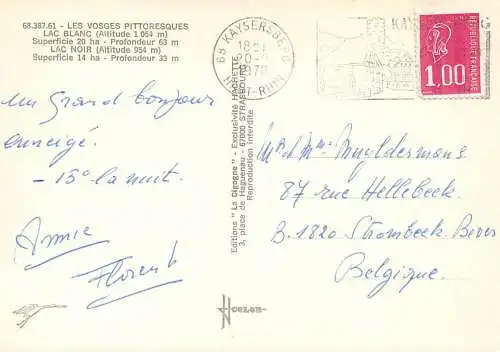 68.387.61 - LES VOSGES PITTORESQUES
LAC BLANC (Altitude 1 054 m)
Superficie 20 ha - Profondeur 63 m
LAC NOIR (Altitude 954 m)
Superficie 14 ha - Profondeur 33 m
68 KAYSERSBERG
18H
1978
HT-RHIN
KAY
1,00
REPUBLIQUE FRANÇAISE
un grand bonjour
enneigé.
- 15° la nuit.
Annie
Florent
Editions "La Cigogne" - Exclusivité HACHETTE
3, place de Haguenau - 67000 STRASBOURG
Reproduction interdite
Mr et Mme Muyldermans
87 rue Hellebeek
B. 1820 Strombeek Bever
Belgique.